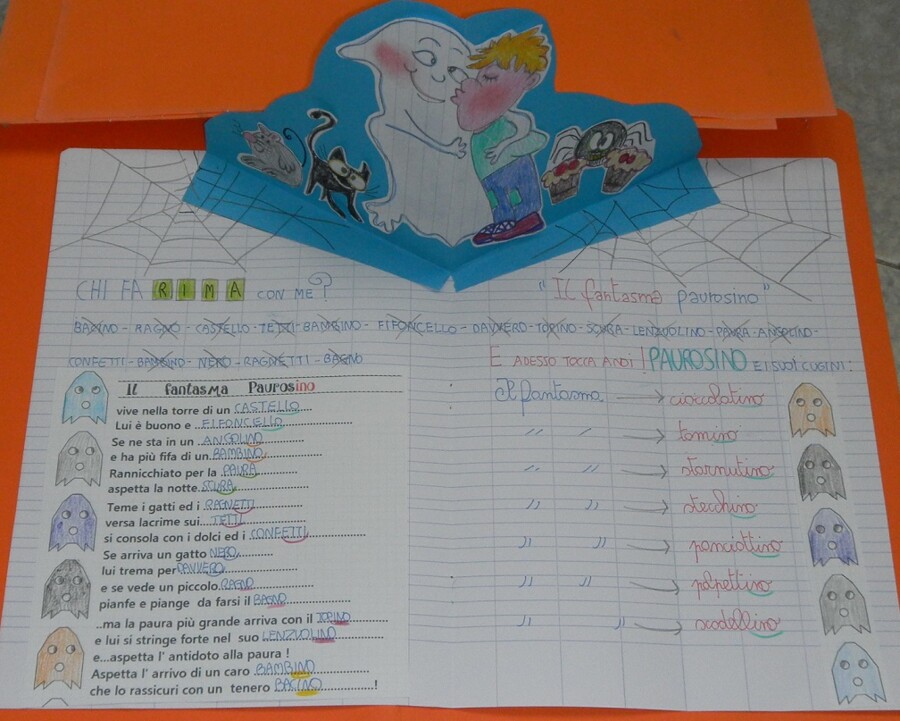 CHI FA RIMA CON ME?
BACINO - RAGNO - CASTELLO - TETTI - BAMBINO - FIFONCELLO - DAVVERO - TOPINO - SCURA - LENZUOLINO - PAURA - ANGOLINO -
CONFETTI - BAMBINO - NERO - RAGNETTI - BAGNO
Il fantasma Paurosino
vive nella torre di un CASTELLO
Lui è buono e FIFONCELLO
Se ne sta in un ANGOLINO
e ha più fifa di un BAMBINO
Rannicchiato per la PAURA
aspetta la notte SCURA
Teme i gatti ed i RAGNETTI
versa lacrime sui TETTI
si consola con i dolci ed i CONFETTI
Se arriva un gatto NERO
lui trema per DAVVERO
e se vede un piccolo RAGNO
pianfe e piange da farsi il BAGNO
..ma la paura più grande arriva con il TOPINO
e lui si stringe forte nel suo LENZUOLINO
e...aspetta l' antidoto alla paura !
Aspetta l' arrivo di un caro BAMBINO
che lo rassicuri con un tenero BACINO !
"Il fantasma paurosino"
E ADESSO TOCCA A NOI! PAUROSINO E I SUOI CUGINI:
Il fantasma → cioccolatino
" " → tomino
" " → starnutino
" " → stecchino
" " → panciottino
" " → polpettino
" " → scodellino